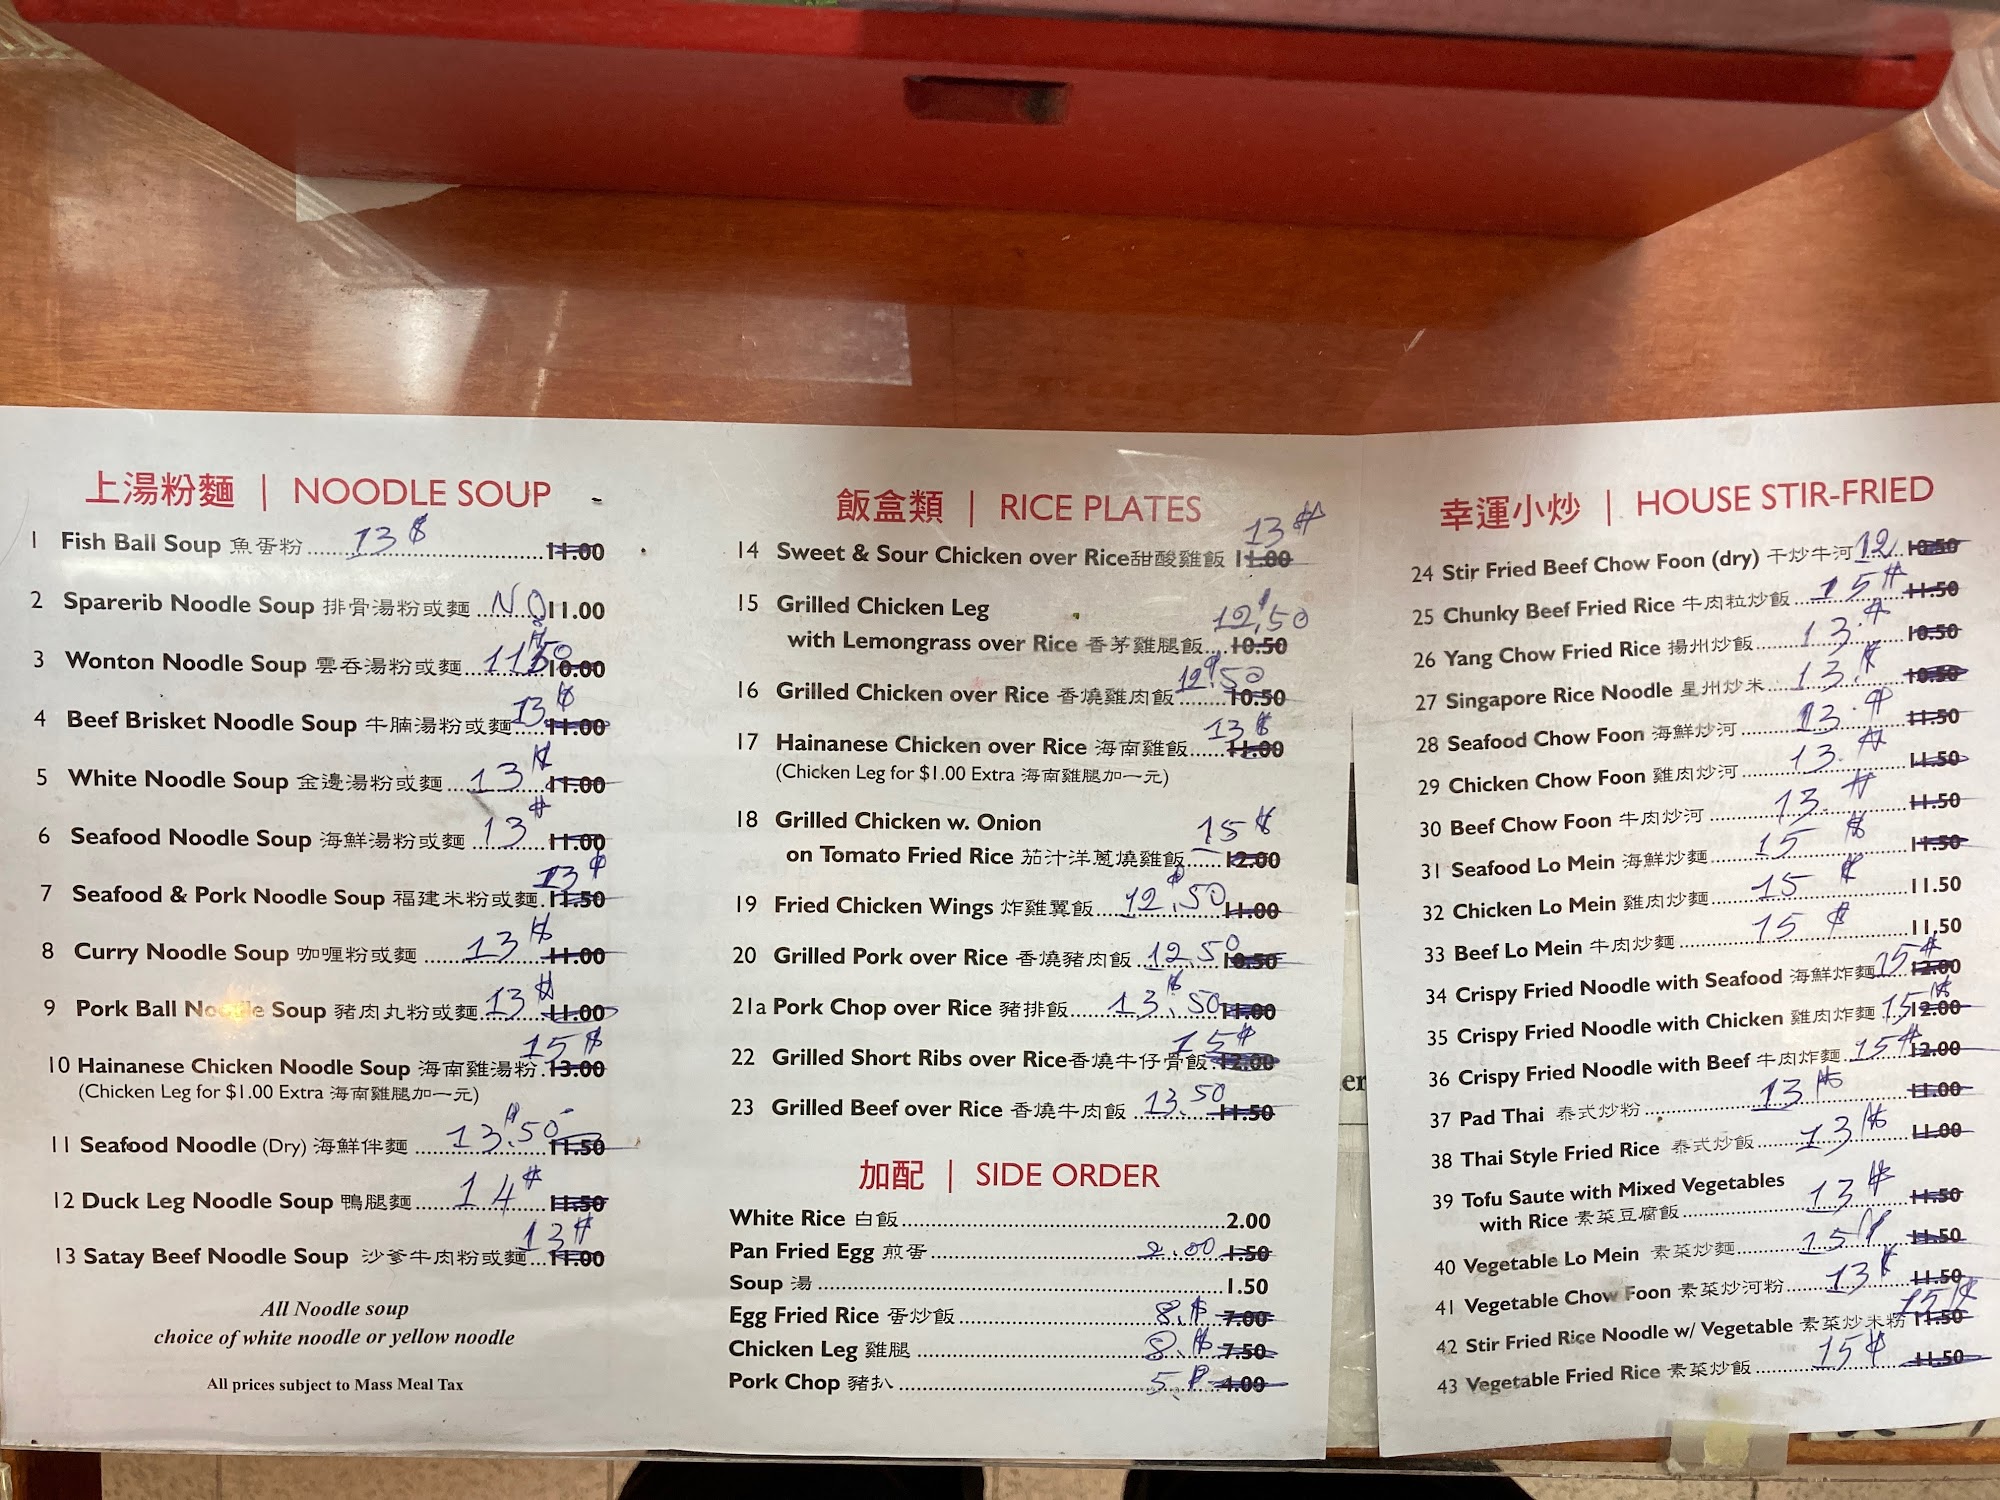 上湯粉麵 | NOODLE SOUP
1 Fish Ball Soup 魚蛋粉 13$ 11.00
2 Sparerib Noodle Soup 排骨湯粉或麵 NO 11.00
3 Wonton Noodle Soup 雲吞湯粉或麵 11.50 10.00
4 Beef Brisket Noodle Soup 牛腩湯粉或麵 13$ 11.00
5 White Noodle Soup 金邊湯粉或麵 13$ 11.00
6 Seafood Noodle Soup 海鮮湯粉或麵 13$ 11.00
7 Seafood & Pork Noodle Soup 福建米粉或麵 13$ 11.50
8 Curry Noodle Soup 咖喱粉或麵 13$ 11.00
9 Pork Ball Noodle Soup 豬肉丸粉或麵 13$ 11.00
10 Hainanese Chicken Noodle Soup 海南雞湯粉 15$ 13.00
(Chicken Leg for $1.00 Extra 海南雞腿加一元)
11 Seafood Noodle (Dry) 海鮮伴麵 13.50 11.50
12 Duck Leg Noodle Soup 鴨腿麵 14$ 11.50
13 Satay Beef Noodle Soup 沙爹牛肉粉或麵 13$ 11.00
All Noodle soup
choice of white noodle or yellow noodle
All prices subject to Mass Meal Tax
飯盒類 | RICE PLATES
14 Sweet & Sour Chicken over Rice 甜酸雞飯 13$ 11.00
15 Grilled Chicken Leg
with Lemongrass over Rice 香茅雞腿飯 12.50 10.50
16 Grilled Chicken over Rice 香燒雞肉飯 12.50 10.50
17 Hainanese Chicken over Rice 海南雞飯 13$ 11.00
(Chicken Leg for $1.00 Extra 海南雞腿加一元)
18 Grilled Chicken w. Onion
on Tomato Fried Rice 茄汁洋蔥燒雞飯 15$ 12.00
19 Fried Chicken Wings 炸雞翼飯 12.50 11.00
20 Grilled Pork over Rice 香燒豬肉飯 12.50 10.50
21a Pork Chop over Rice 豬排飯 13.50 11.00
22 Grilled Short Ribs over Rice 香燒牛仔骨飯 15$ 12.00
23 Grilled Beef over Rice 香燒牛肉飯 13.50 11.50
加配 | SIDE ORDER
White Rice 白飯 2.00
Pan Fried Egg 煎蛋 2.00 1.50
Soup 湯 1.50
Egg Fried Rice 蛋炒飯 8.$ 7.00
Chicken Leg 雞腿 8.$ 7.50
Pork Chop 豬扒 5.$ 4.00
幸運小炒 | HOUSE STIR-FRIED
24 Stir Fried Beef Chow Foon (dry) 干炒牛河 12 10.50
25 Chunky Beef Fried Rice 牛肉粒炒飯 15$ 11.50
26 Yang Chow Fried Rice 揚州炒飯 13.$ 10.50
27 Singapore Rice Noodle 星州炒米 13.$ 10.50
28 Seafood Chow Foon 海鮮炒河 13.$ 11.50
29 Chicken Chow Foon 雞肉炒河 13.$ 11.50
30 Beef Chow Foon 牛肉炒河 13.$ 11.50
31 Seafood Lo Mein 海鮮炒麵 15$ 11.50
32 Chicken Lo Mein 雞肉炒麵 15$ 11.50
33 Beef Lo Mein 牛肉炒麵 15$ 11.50
34 Crispy Fried Noodle with Seafood 海鮮炸麵 15$ 12.00
35 Crispy Fried Noodle with Chicken 雞肉炸麵 15$ 12.00
36 Crispy Fried Noodle with Beef 牛肉炸麵 15$ 12.00
37 Pad Thai 泰式炒粉 13$ 11.00
38 Thai Style Fried Rice 泰式炒飯 13$ 11.00
39 Tofu Saute with Mixed Vegetables
with Rice 素菜豆腐飯 13$ 11.50
40 Vegetable Lo Mein 素菜炒麵 15$ 11.50
41 Vegetable Chow Foon 素菜炒河粉 13$ 11.50
42 Stir Fried Rice Noodle w/ Vegetable 素菜炒米粉 15$ 11.50
43 Vegetable Fried Rice 素菜炒飯 15$ 11.50